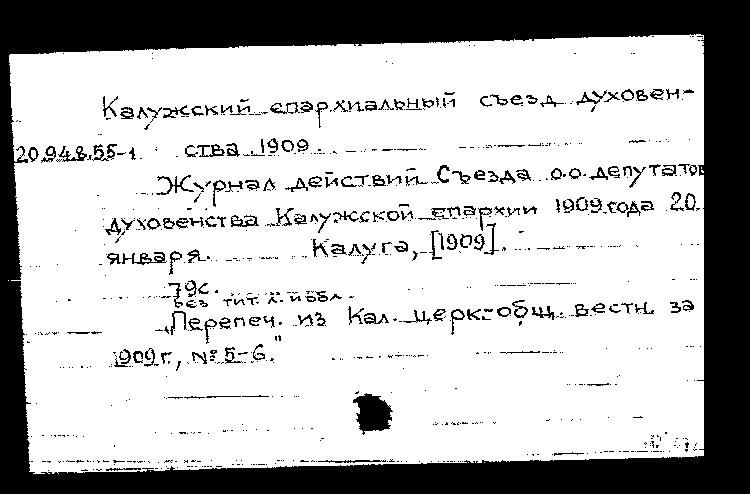 Калужский епархиальный съезд духовен-
20.94.8.55-1 ства. 1909.
Журнал действий Съезда о.о. депутатов
духовенства Калужской епархии 1909 года 20
января. Калуга, [1909].
79с.
Без тит. л. и обл.
„Перепеч. из Кал. церк.-общ. вестн. за
1909 г., № 5-6."